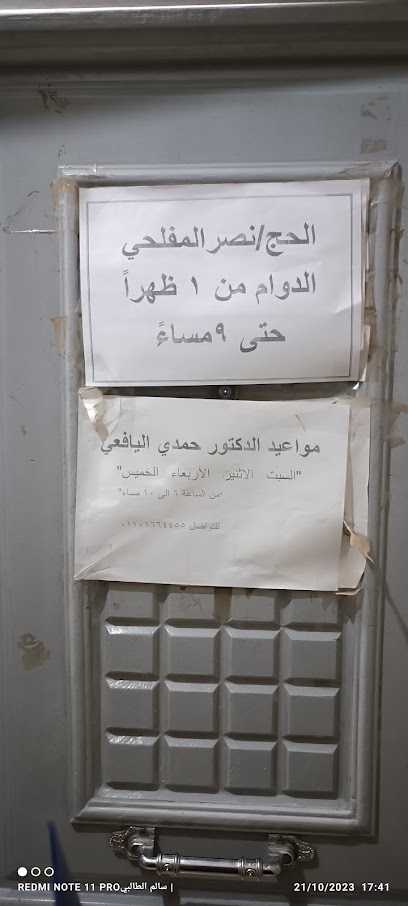 الحج/نصر المفلحي
الدوام من ١ ظهراً
حتى ٩ مساءً
مواعيد الدكتور حمدي اليافعي
"السبت الاثنين الأربعاء الخميس"
من الساعة ٦ الى ١٠ مساء"
للتواصل
REDMI NOTE 11 PRO سالم الطالبي |
21/10/2023 17:41